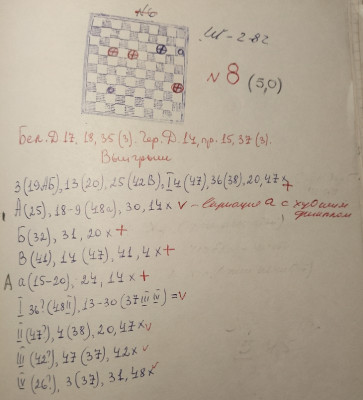 №6
ШГ-2-82
№8 (5,0)
Бел. Д 17, 18, 35 (3). Чер. Д. 14, пр. 15, 37 (3).
Выигрыш
3(19АБ), 13(20), 25(42В), I 4(47), 36(38), 20, 47x+
А(25), 18-9(48а), 30, 14x v - вариация а с худшим финалом
Б(32), 31, 20x+
В(41), 14(47), 41, 4x+
А а(15-20), 24, 14x+
I 36?(48II), 13-30(37 III IV)=v
II(47?), 4(38), 20, 47x v
III(42?), 47(37), 42x v
IV(26?), 3(37), 31, 48x v